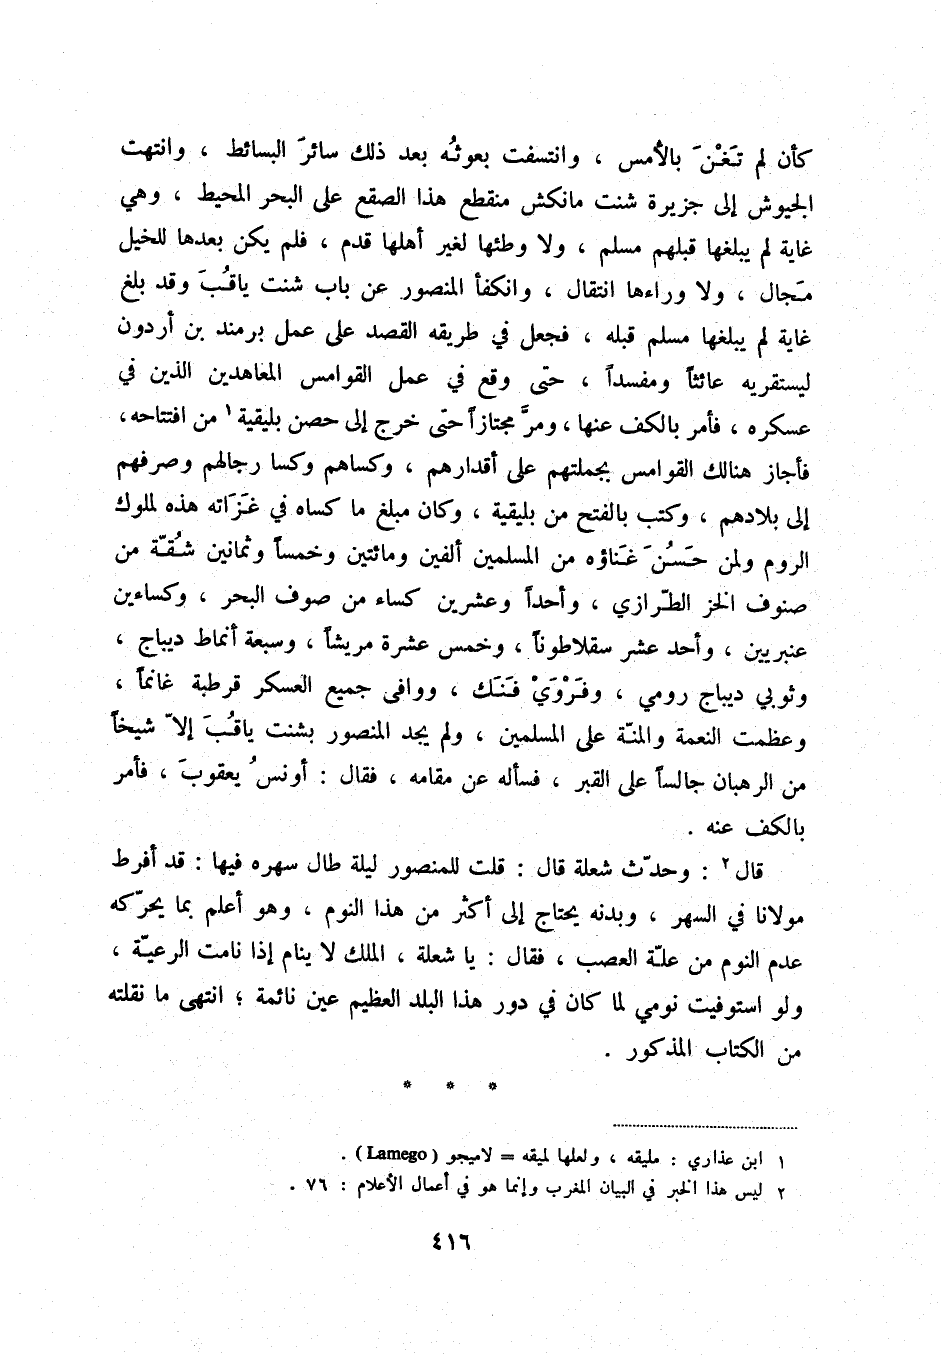 كأن لم تَغْنَ بالأمس ، وانتسفت بعوثُه بعد ذلك سائرَ البسائط ، وانتهت
الجيوش إلى جزيرة شنت مانكش منقطع هذا الصقع على البحر المحيط ، وهي
غاية لم يبلغها قبلهم مسلم ، ولا وطئها لغير أهلها قدم ، فلم يكن بعدها للخيل
مَجال ، ولا وراءها انتقال ، وانكفأ المنصور عن باب شنت ياقُبَ وقد بلغ
غاية لم يبلغها مسلم قبله ، فجعل في طريقه القصد على عمل برمند بن أردون
ليستقريه عائثاً ومفسداً ، حتّى وقع في عمل القوامس المعاهدين الذين في
عسكره ، فأمر بالكف عنها ، ومرَّ مجتازاً حتّى خرج إلى حصن بليقية ١ من افتتاحه ،
فأجاز هنالك القوامس بجملتهم على أقدارهم ، وكساهم وكسا رجالهم وصرفهم
إلى بلادهم ، وكتب بالفتح من بليقية ، وكان مبلغ ما كساه في غَزَاته هذه لملوك
الروم ولمن حَسُنَ غَناؤه من المسلمين ألفين ومائتين وخمساً وثمانين شُقّة من
صنوف الخز الطّرازي ، وأحداً وعشرين كساء من صوف البحر ، وكساءين
عنبريين ، وأحد عشر سقلاطوناً ، وخمس عشرة مريشاً ، وسبعة أنماط ديباج ،
وثوبي ديباج رومي ، وفَرْوَيْ فَنَك ، ووافى جميع العسكر قرطبة غانماً ،
وعظمت النعمة والمنّة على المسلمين ، ولم يجد المنصور بشنت ياقُبَ إلاّ شيخاً
من الرهبان جالساً على القبر ، فسأله عن مقامه ، فقال : أونسُ يعقوبَ ، فأمر
بالكف عنه .
قال ٢ : وحدّث شعلة قال : قلت للمنصور ليلة طال سهره فيها : قد أفرط
مولانا في السهر ، وبدنه يحتاج إلى أكثر من هذا النوم ، وهو أعلم بما يحرّكه
عدم النوم من علّة العصب ، فقال : يا شعلة ، الملك لا ينام إذا نامت الرعيّة ،
ولو استوفيت نومي لما كان في دور هذا البلد العظيم عين نائمة ؛ انتهى ما نقلته
من الكتاب المذكور .
* * *
١ ابن عذاري : مليقه ، ولعلها لميقه = لاميجو (Lamego) .
٢ ليس هذا الخبر في البيان المغرب وإنما هو في أعمال الأعلام : ٧٦ .
٤١٦